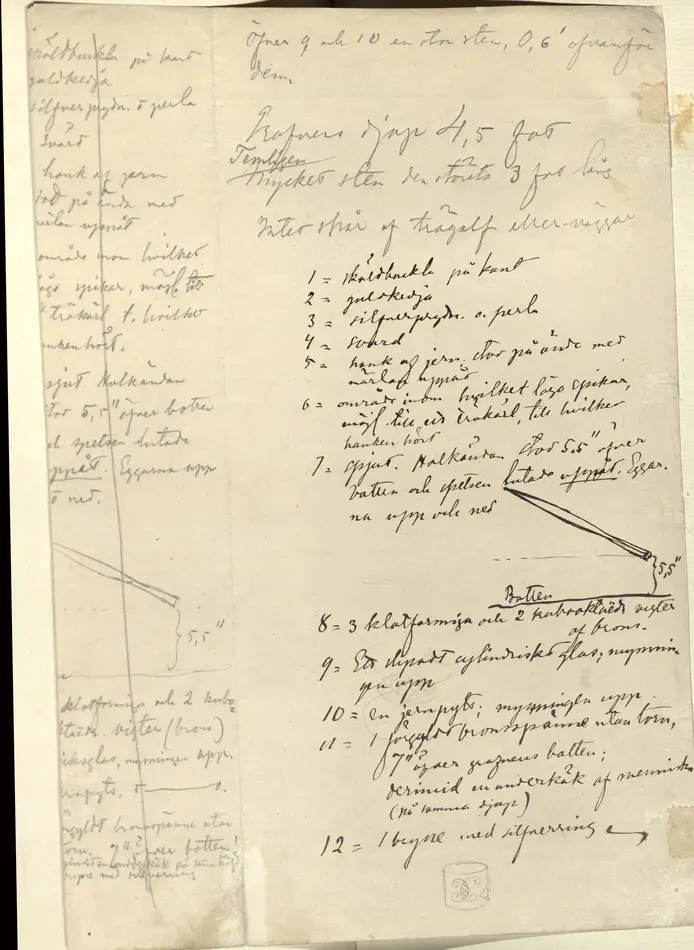 öfver 9 och 10 en stor sten, 0,6' ofvanför
dem.
Grafvens djup 4,5 fot
Temligen
Mycket sten den största 3 fot lång
Intet spår af trägolf eller väggar
1 = sköldbuckla på kant
2 = guldkedja
3 = silfverprydn. o. perla
4 = svärd
5 = hank af jern. stod på ände med
märlan uppåt
6 = område inom hvilket lågo spikar,
möjl. till ett träkärl, till hvilket
hanken hört
7 = spjut. Holkändan stod 5,5" öfver
botten och spetsen lutade uppåt. Eggar-
na upp och ned
5,5"
Botten
8 = 3 klotformiga och 2 kubooktaëdr. vigter
af brons.
9 = Ett slipadt cylindriskt glas; mynnin-
gen upp
10 = en jernpyts; mynningen upp.
11 = 1 förgyldt bronsspänne utan torn,
7"? öfver grafvens botten;
dervid en underkäk af menniska
(på samma djup)
12 = 1 bryne med silfverring
sköldbuckla på kant
guldkedja
silfverprydn. o perla
svärd
hank af jern
stod på ända med
märlan uppåt
område inom hvilket
lågo spikar, möjl. till
träkärl t. hvilket
hanken hört.
spjut. Holkändan
stod 5,5" öfver botten
och spetsen lutade
uppåt. Eggarna upp
o ned.
5,5"
klotformiga och 2 kubo-
oktaëdr. vigter (brons)
glas, mynningen upp.
jernpyts, o.
förgyldt bronsspänne utan
torn. 7"? öfver botten!
bryne med silfverring